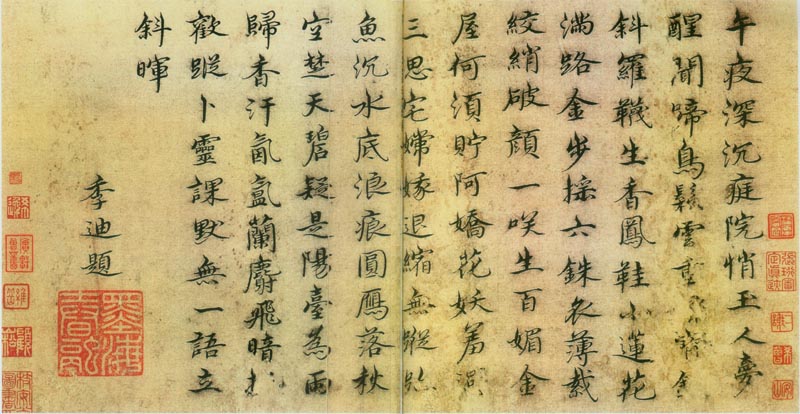 午夜深沉庭院悄玉人夢
醒聞啼鳥鬆雲重金
斜羅韈生香鳳鞋小蓮花
滿路金步搖六銖衣薄裁
絞綃破顏一咲生百媚金
屋何須貯阿嬌花妖羞
三思宅嫦娥退縮無蹤
魚沉水底浪痕圓鴈落秋
空楚天碧疑是陽臺為雨
歸香汗氤氳蘭麝飛暗
歡蹤卜靈課默無一語立
斜暉
季迪題